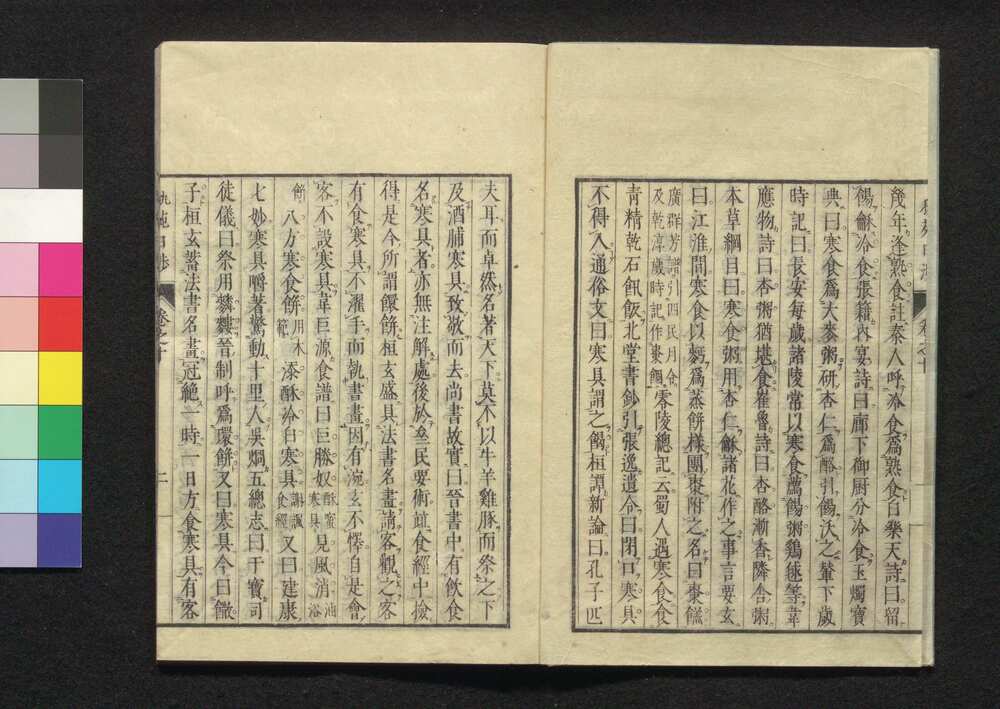 幾年逢熟食註秦人呼冷食爲熟食白樂天詩曰留
餳龢冷食張籍內宴詩曰廊下御厨分冷食玉燭寶
典曰寒食爲大麥粥研杏仁爲酪引餳沃之輦下歲
時記曰長安每歲諸陵常以寒食薦餳粥鷄毬等韋
應物詩曰杏粥猶堪食崔魯詩曰杏酪漸香隣舍粥
本草綱目曰寒食粥用杏仁龢諸花作之事言要玄
曰江淮間寒食以麪爲蒸餅樣團棗附之名曰棗䭅
廣群芳譜引四民月令
及乾淳歲時記作棗䭅
零陵總記云蜀人遇寒食食
青精乾石飿飯北堂書鈔引張逸遺令曰閉口寒具
不得入通俗文曰寒具謂之餲桓譚新論曰孔子匹
夫耳而卓然名著天下莫不以牛羊雞豚而祭之下
及酒脯寒具致敬而去尚書故實曰晉書中有飲食
名寒具者亦無注解處後於齊民要術竝食經中撿
得是今所謂䭔餅桓玄盛具法書名畫請客觀之客
有食寒具不濯手而執書畫因有涴玄不懌自是會
客不設寒具韋巨源食譜曰巨勝奴
酥蜜
寒具
見風消
油浴
餅
八方寒食餅
用木
範
添酥冷白寒具
謝諷
食經
又曰建康
七妙寒具嚼著驚動十里人吳烱五總志曰干寶司
徒儀曰祭用䴼䴹晉制呼爲環餅又曰寒具今曰饊
子桓玄蓄法書名畫冠絶一時一日方食寒具有客
卷之十
二